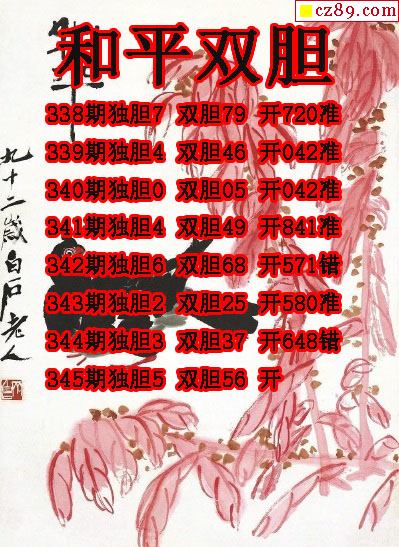 cz89.com
和平双胆
338期独胆7 双胆79 开720准
339期独胆4 双胆46 开042准
340期独胆0 双胆05 开042准
341期独胆4 双胆49 开841准
342期独胆6 双胆68 开571错
343期独胆2 双胆25 开580准
344期独胆3 双胆37 开648错
345期独胆5 双胆56 开
九十二岁白石老人